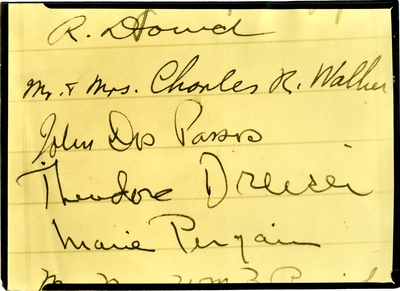 Mr. & Mrs. Charles R. Walker
John Dos Passos
Theodore Dreiser
Marie Pergain